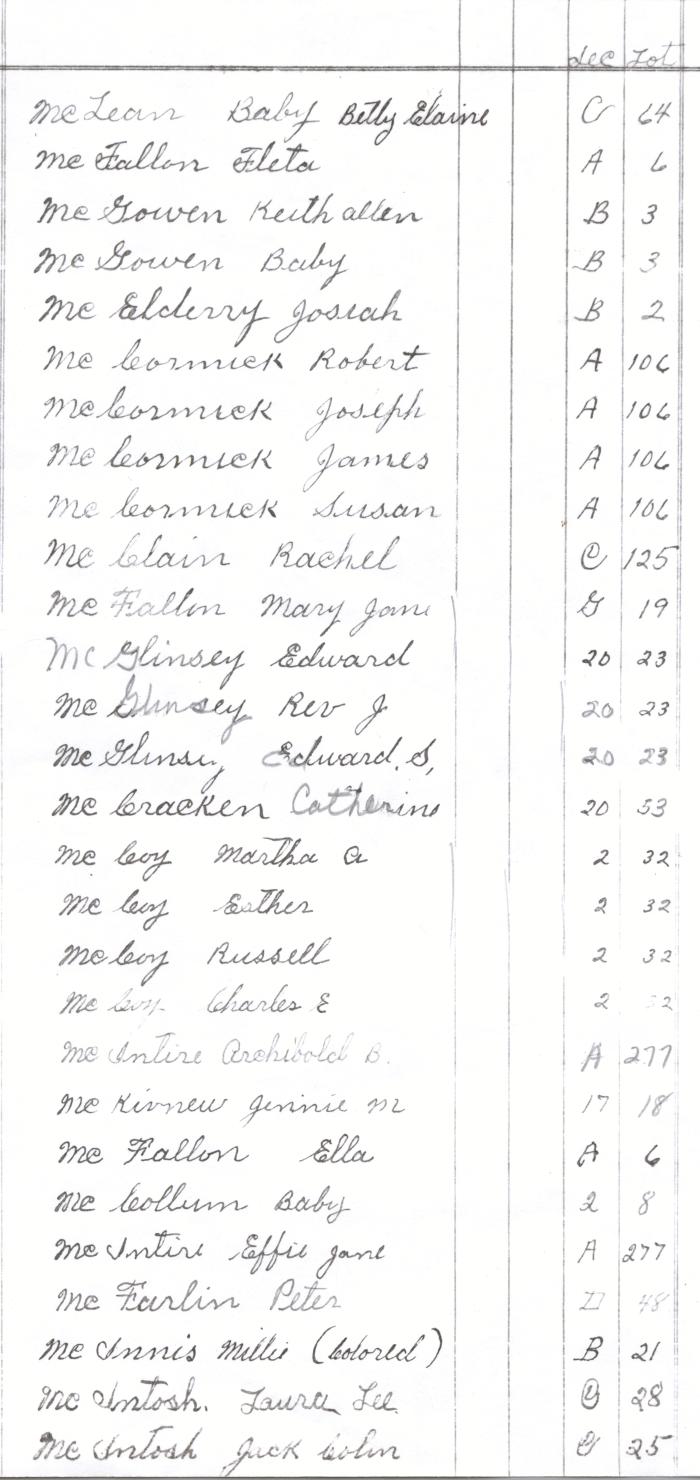 Sec Lot
McLean Baby Betty Elaine C 64
Mc Fallon Fleta A 6
Mc Gowen Keith allen B 3
Mc Gowen Baby B 3
Mc Elderry Josiah B 2
Mc Cormick Robert A 106
McCormick Joseph A 106
Mc Cormick James A 106
Mc Cormick Susan A 106
Mc Clain Rachel C 125
Mc Fallon Mary Jane G 19
Mc Glinsey Edward 20 23
Mc Glinsey Rev J 20 23
Mc Glinsey Edward. S, 20 23
Mc Cracken Catherine 20 53
Mc Coy Martha A 2 32
Mc Coy Esther 2 32
McCoy Russell 2 32
Mc Coy Charles E 2 32
Mc Intire Archibold B. A 277
Mc Kivnew Jennie M 17 18
Mc Fallon Ella A 6
Mc Collum Baby 2 8
Mc Intire Effie Jane A 277
Mc Farlin Peter D 48
Mc Innis Millie (Colored) B 21
Mc Intosh. Laura Lee 28
Mc Intosh Jack Colin 25